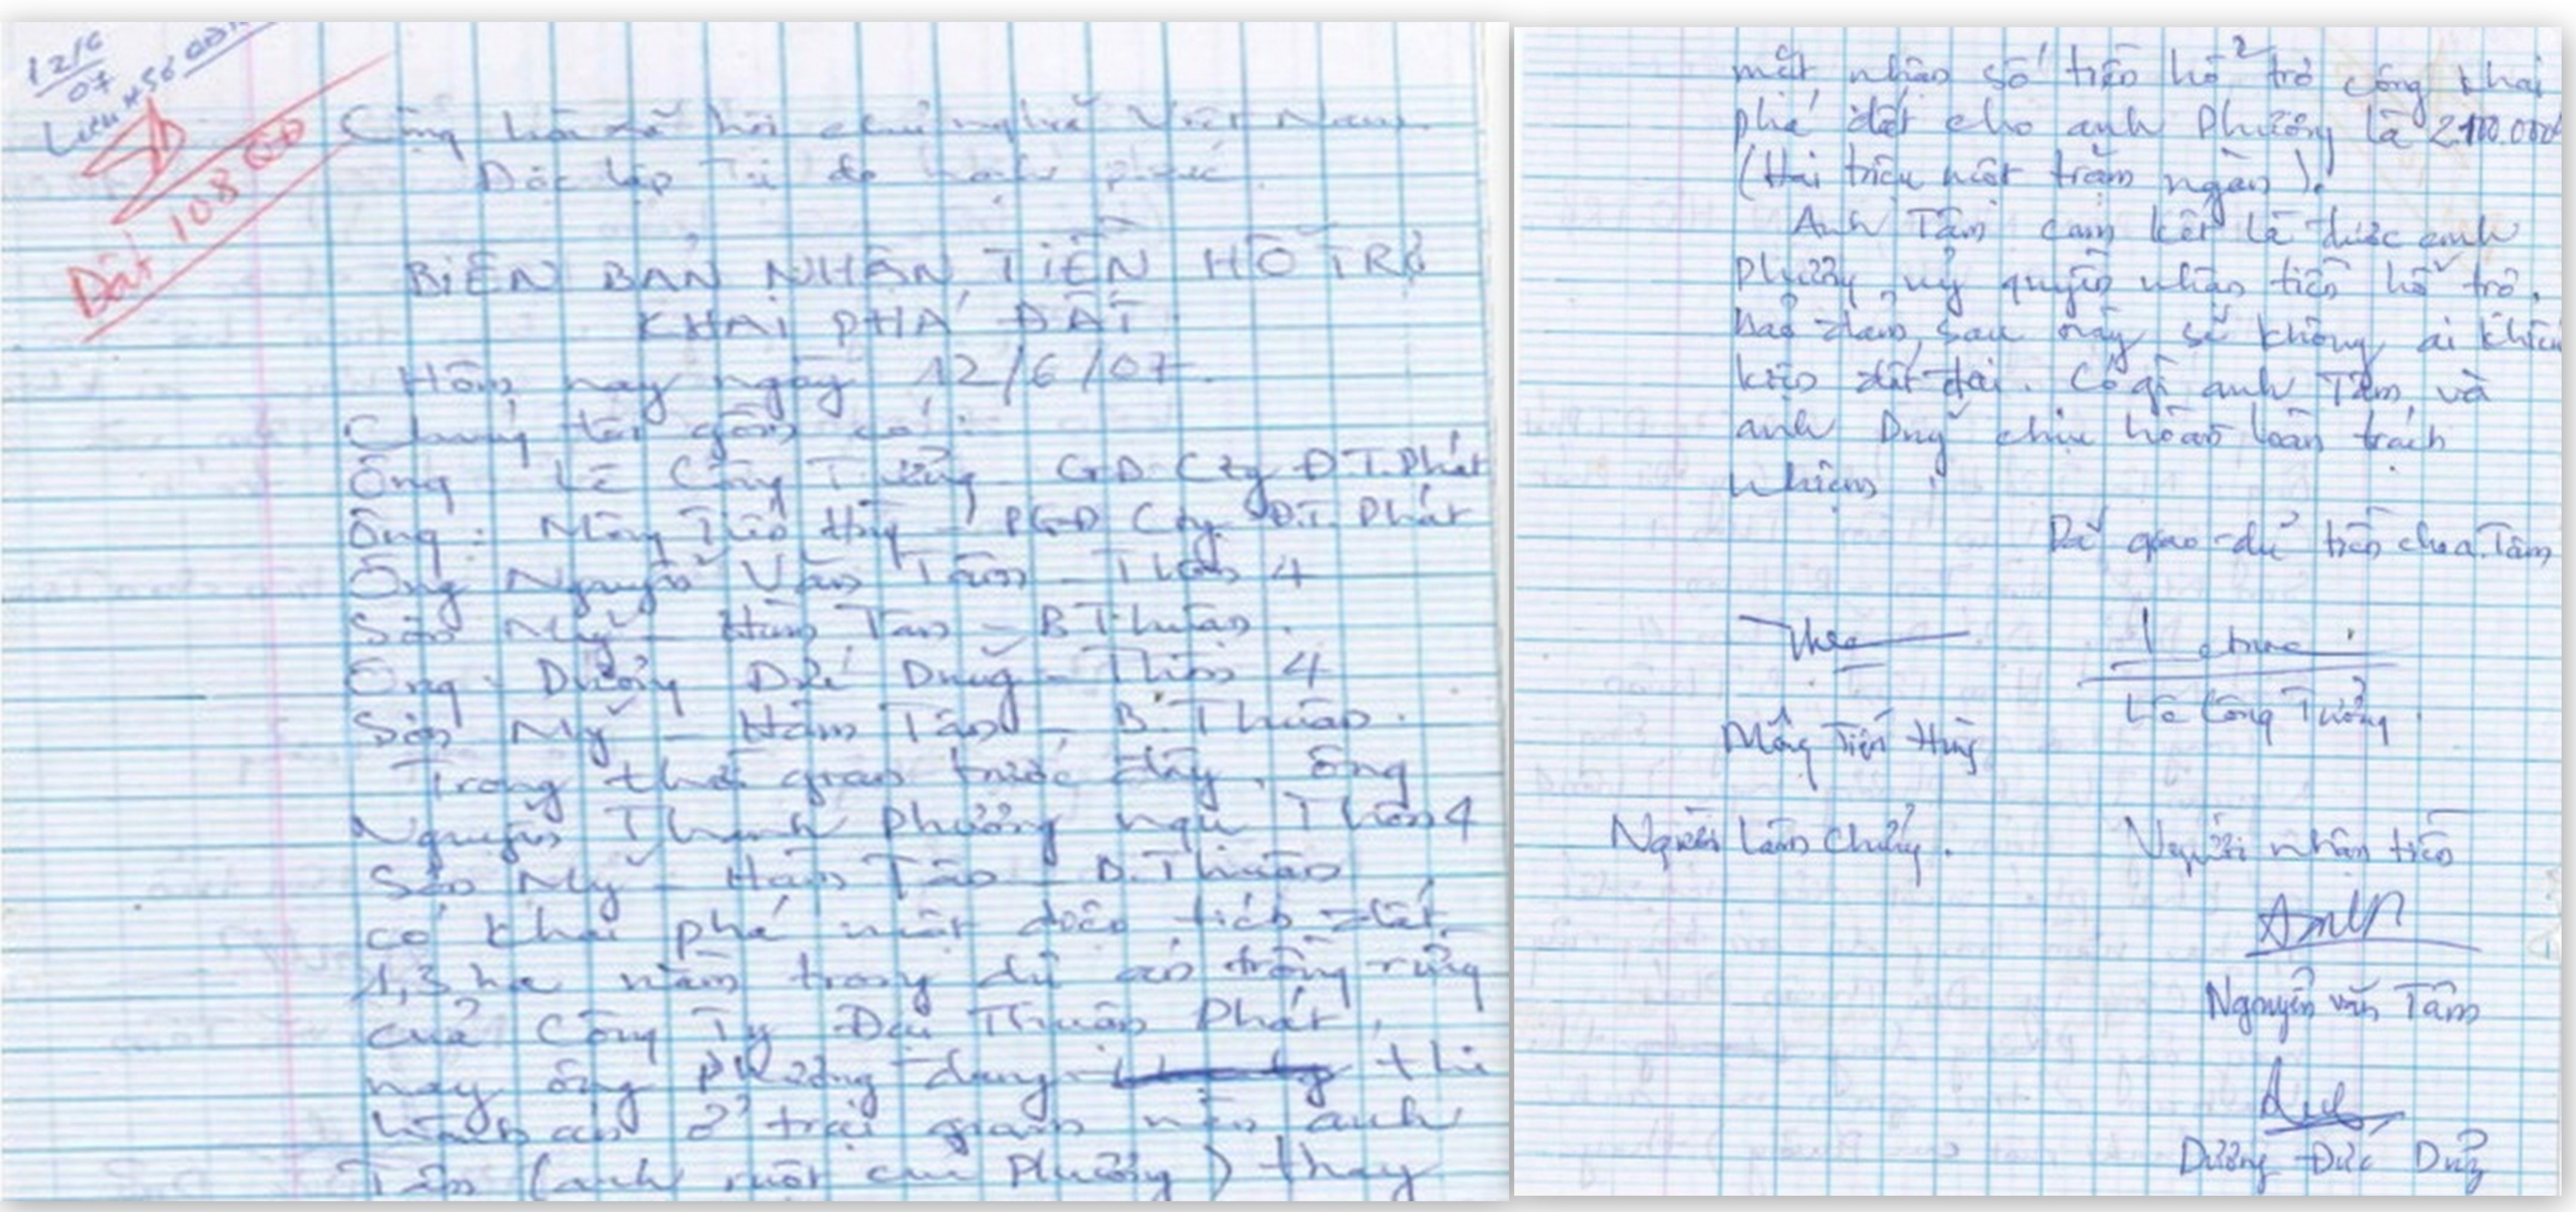 12/6
07
Lưu HSố
Đất 108
Cộng hòa xã hội chủ nghĩa Việt Nam
Độc lập Tự do hạnh phúc
BIÊN BẢN NHẬN TIỀN HỖ TRỢ
KHAI PHÁ ĐẤT
Hôm nay ngày 12/6/07.
Chúng tôi gồm có:
Ông Lê Công Tưởng - GĐ Cty Đ.T.Phát
Ông: Mông Tiến Hùng - PGĐ Cty Đ.T. Phát
Ông Nguyễn Văn Tâm - Thôn 4
Sơn Mỹ - Hàm Tân - B Thuận.
Ông: Dương Đức - Thôn 4
Sơn Mỹ - Hàm Tân - B. Thuận.
Trong thời gian trước đây, ông
Nguyễn Thanh Phương ngụ Thôn 4
Sơn Mỹ - Hàm Tân - B. Thuận
có khai phá một diện tích đất
1,3 ha nằm trong dự án trồng rừng
của Công Ty Đại Thuận Phát,
nay ông Phương đang thi
hành án ở trại giam nên anh
Tâm (anh ruột của Phương) thay
mặt nhận số tiền hỗ trợ công khai
phá đất cho anh Phương là 2.100.000đ
(Hai triệu một trăm ngàn).
Anh Tâm cam kết là được anh
Phương uỷ quyền nhận tiền hỗ trợ,
bảo đảm sau này sẽ không ai khiếu
kiện đất đai. Có gì anh Tâm và
anh chịu hoàn toàn trách
nhiệm.
Đã giao đủ tiền cho a. Tâm
Mông Tiến Hùng
Lê Công Tưởng
Người làm chứng.
Người nhận tiền
Nguyễn văn Tâm
Dương Đức